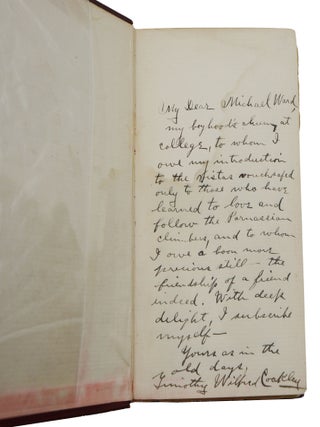 My Dear Michael Ward,
my boyhood's chum at
college, to whom I
owe my introduction
to the vistas vouchsafed
only to those who have
learned to love and
follow the Parnassian
climbers, and to whom
I owe a boon more
precious still — the
friendship of a friend
indeed. With deep
delight, I subscribe
myself —
Yours as in the
old days,
Timothy Wilfred Coakley